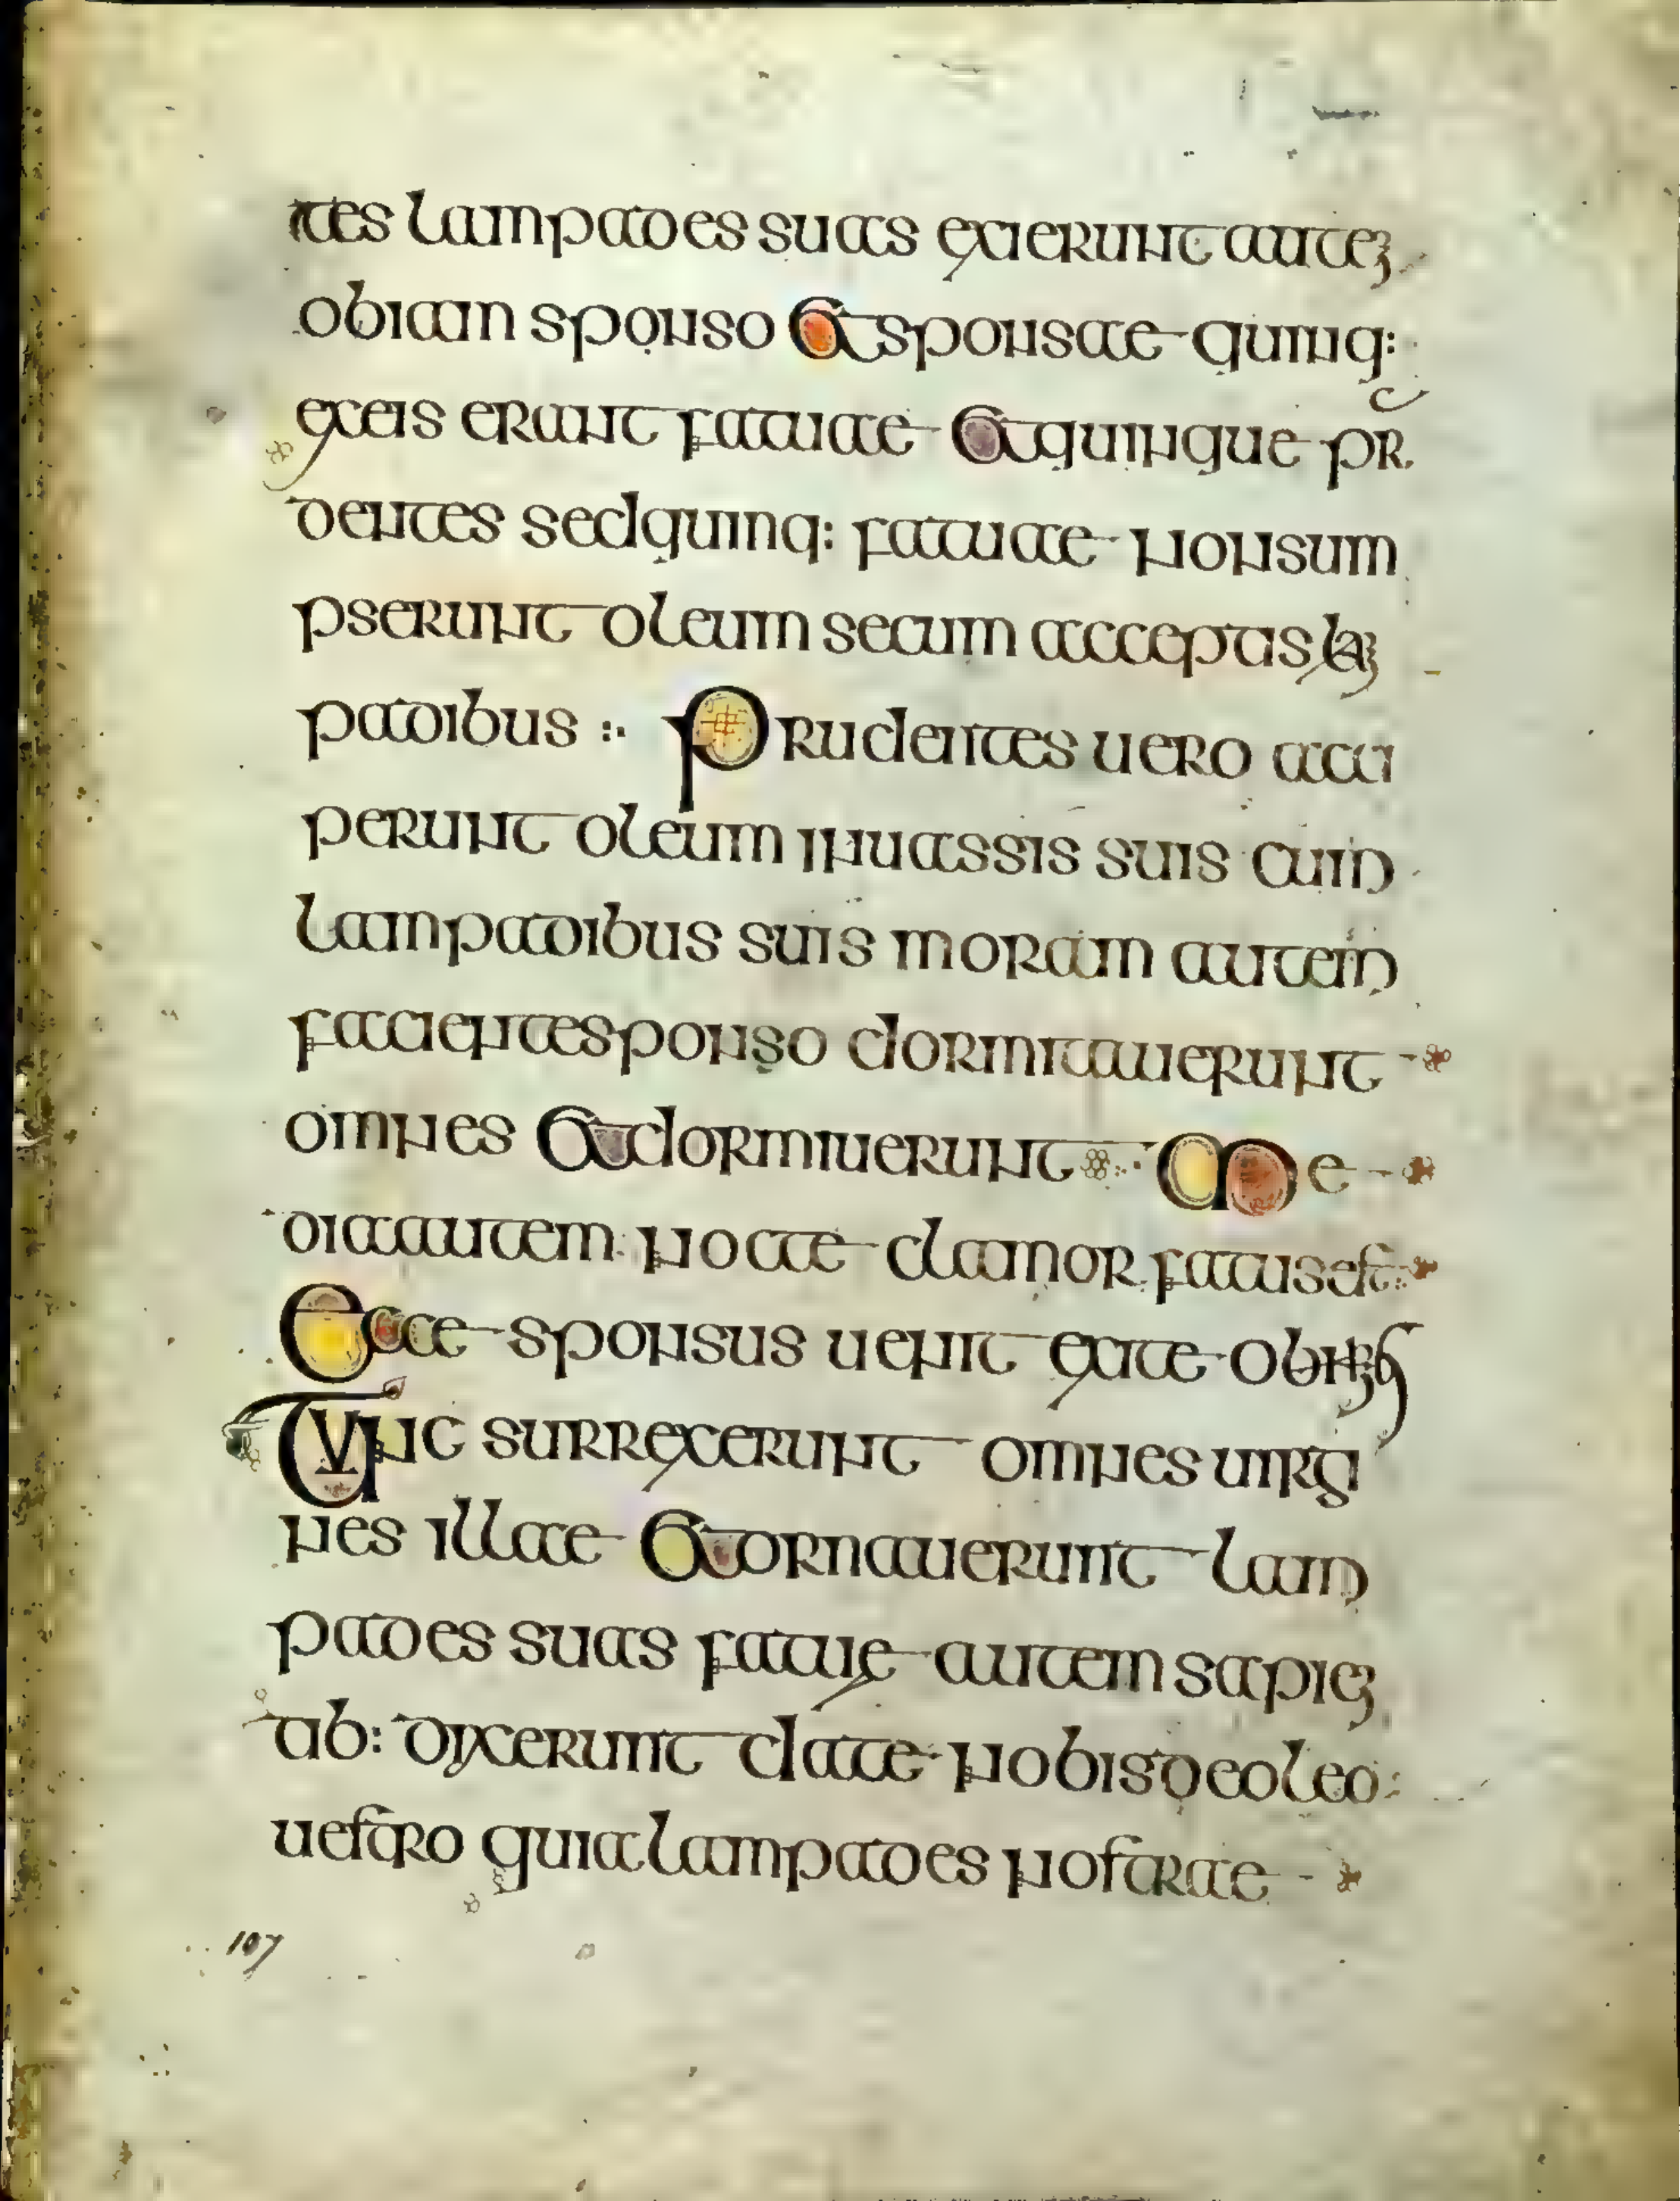 tes lampades suas exierunt autem
obiam sponso et sponsae quinq:
ex eis erant fatuae et quinque pru
dentes sed quinq: fatuae non sum
pserunt oleum secum acceptis lam
padibus Prudentes uero acci
perunt oleum in uassis suis cum
lampadibus suis moram autem
faciente sponso dormitauerunt
omnes et dormierunt Me
dia autem nocte clamor factus est
Ecce sponsus uenit exite obiam
Tunc surrexerunt omnes uirgi
nes illae et ornauerunt lam
pades suas fatuę autem sapien
tib: dixerunt date nobis de oleo
uestro quia lampades nostrae
107